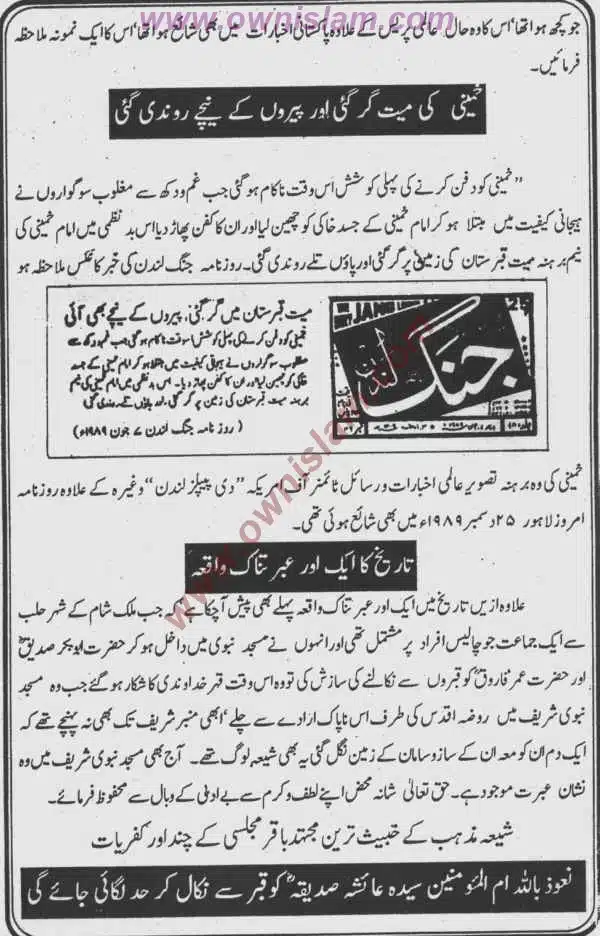 www.ownislam.com
جو کچھ ہوا تھا، اس کا وہ حال، عالمی پریس کے علاوہ پاکستانی اخبارات میں بھی شائع ہوا تھا، اس کا ایک نمونہ ملاحظہ
فرمائیں۔
خمینی کی میت گر گئی اور پیروں کے نیچے روندی گئی
”خمینی کو دفن کرنے کی پہلی کوشش اس وقت ناکام ہو گئی جب غم و دکھ سے مغلوب سوگواروں نے
ہیجانی کیفیت میں مبتلا ہو کر امام خمینی کے جسد خاکی کو چھین لیا اور ان کا کفن پھاڑ دیا اس بد نظمی میں امام خمینی کی
نیم برہنہ میت قبرستان کی زمین پر گر گئی اور پاؤں تلے روندی گئی۔ روزنامہ جنگ لندن کی خبر کا عکس ملاحظہ ہو
JANG
جنگ
لندن
میت قبرستان میں گر گئی، پیروں کے نیچے بھی آئی
خمینی کو دفن کرنے کی پہلی کوشش اس وقت ناکام ہو گئی جب غم و دکھ سے
مغلوب سوگواروں نے ہیجانی کیفیت میں مبتلا ہو کر امام خمینی کے جسد
خاکی کو چھین لیا اور ان کا کفن پھاڑ دیا۔ اس بد نظمی میں امام خمینی کی نیم
برہنہ میت قبرستان کی زمین پر گر گئی، اور پاؤں تلے روندی گئی
(روزنامہ جنگ لندن ۷ جون ۱۹۸۹ء)
خمینی کی وہ برہنہ تصویر عالمی اخبارات و رسائل ٹائمز آف امریکہ ”دی پیپلز لندن“ وغیرہ کے علاوہ روزنامہ
امروز لاہور ۲۵ دسمبر ۱۹۸۹ء میں بھی شائع ہوئی تھی۔
تاریخ کا ایک اور عبرتناک واقعہ
علاوہ ازیں تاریخ میں ایک اور عبرتناک واقعہ پہلے بھی پیش آچکا ہے کہ جب ملک شام کے شہر حلب
سے ایک جماعت جو چالیس افراد پر مشتمل تھی اور انہوں نے مسجد نبوی میں داخل ہو کر حضرت ابوبکر صدیقؓ
اور حضرت عمر فاروقؓ کو قبروں سے نکالنے کی سازش کی تو وہ اس وقت قہر خداوندی کا شکار ہو گئے جب وہ مسجد
نبوی شریف میں روضہ اقدس کی طرف اس ناپاک ارادے سے چلے، ابھی منبر شریف تک بھی نہ پہنچے تھے کہ
ایک دم ان کو معہ ان کے ساز و سامان کے زمین نگل گئی یہ بھی شیعہ لوگ تھے۔ آج بھی مسجد نبوی شریف میں وہ
نشان عبرت موجود ہے۔ حق تعالیٰ شانہ محض اپنے لطف و کرم سے بے ادبی کے وبال سے محفوظ فرمائے۔
شیعہ مذہب کے خبیث ترین مجتہد باقر مجلسی کے چند اور کفریات
نعوذ باللہ ام المؤمنین سیدہ عائشہ صدیقہؓ کو قبر سے نکال کر حد لگائی جائے گی
www.ownislam.com